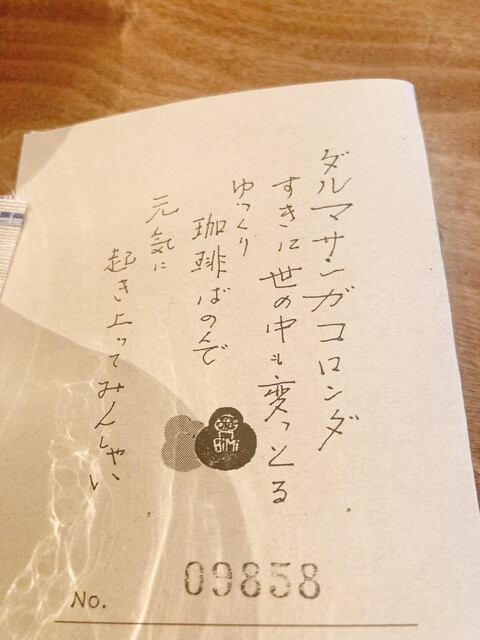 ダルマサンガコロンダ
すきに世の中も変っとる
ゆっくり
珈琲ばのんで
元気に
起き上ってみんしゃい
BiMi
No. 09858